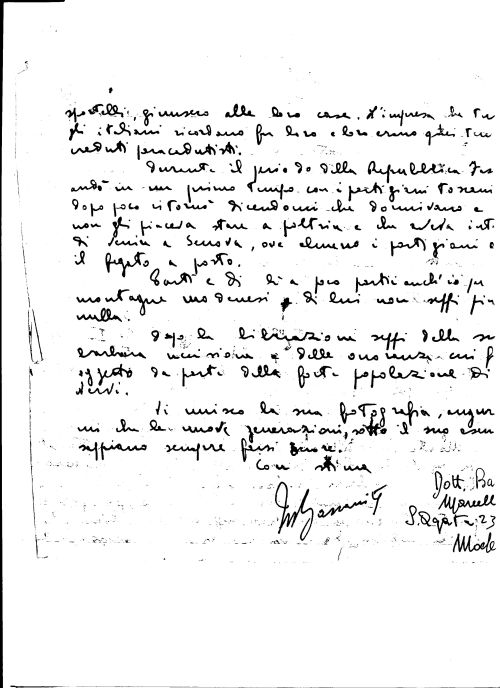 sportelli, giunsero alle loro case. L'impresa
gli italiani ricordano fra loro e loro erano quei
creduti paracadutisti.
Durante il periodo della Repubblica
andò in un primo tempo con i partigiani toscani
dopo poco ritornò dicendomi che dormivano e
non gli piaceva stare a poltrire e che aveva
di venire a Genova, ove almeno i partigiani
il fegato a posto.
Partì e di lì a poco partii anch'io
montagne modenesi e di lui non seppi più
nulla.
Dopo la liberazione seppi della
barbara uccisione e delle onoranze cui
oggetto da parte della forte popolazione di
Nervi.
Vi unisco la sua fotografia,
mi che le nuove generazioni, sotto il suo
sappiano sempre farsi onore.
Con stima
Dott. Ba
Marcell
S. Agata, 23
Mode